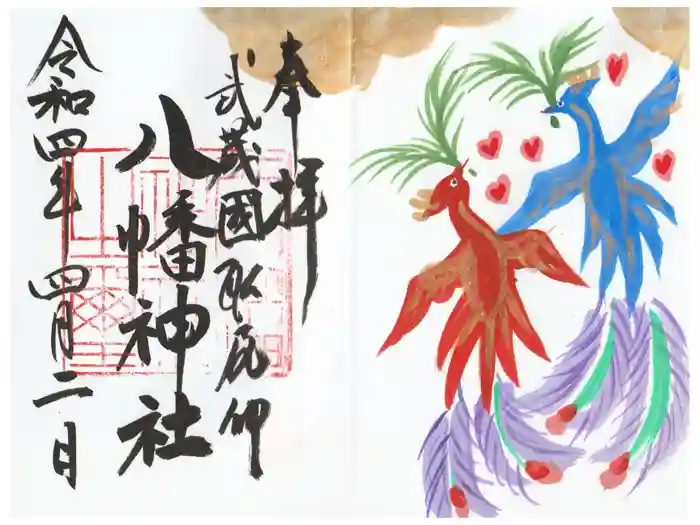 奉拝
武蔵國
八幡神社
令和四年 四月二日